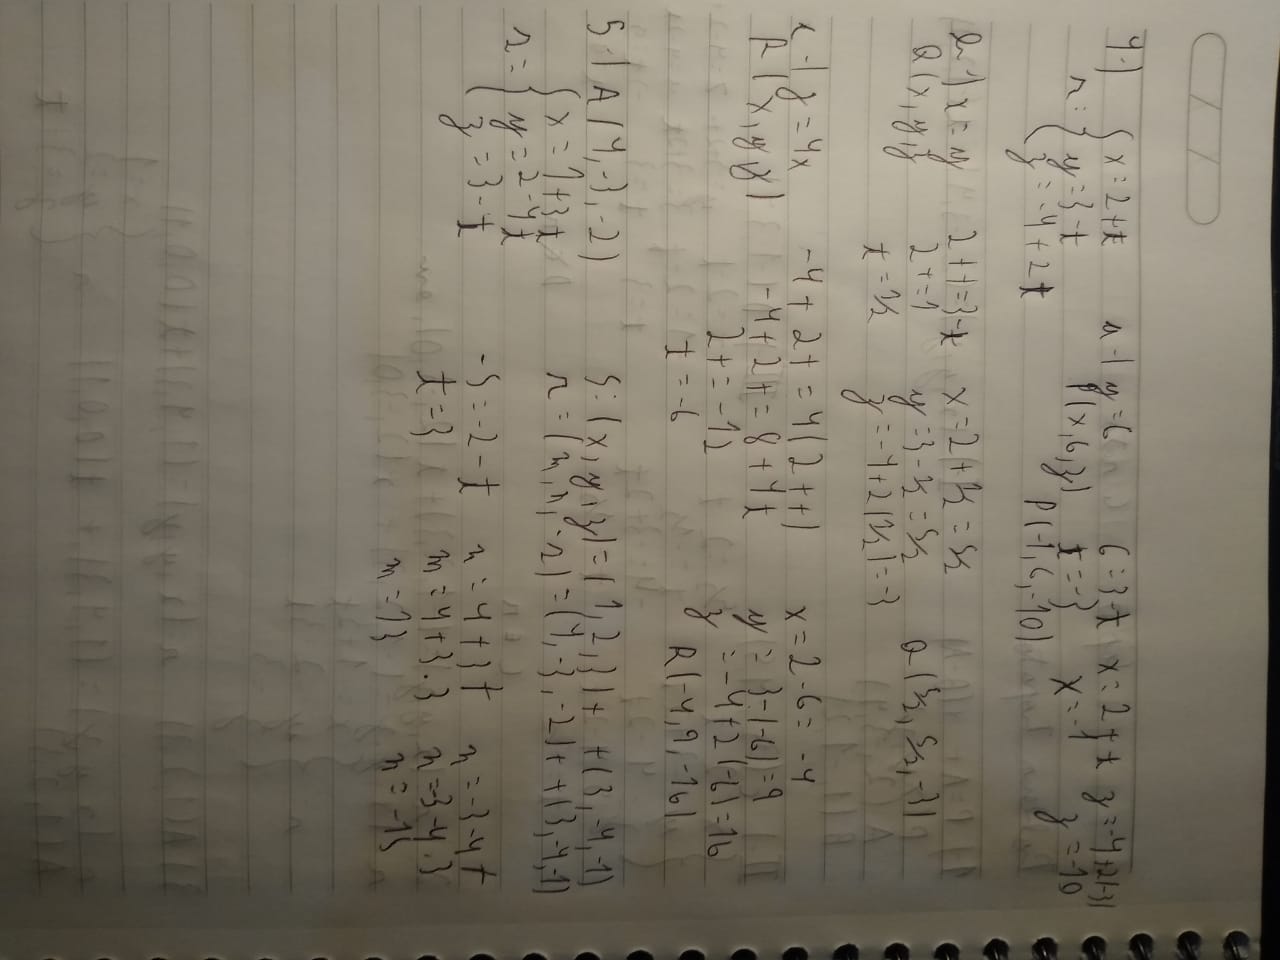 4-)
r: { x = 2 + t
y = 3 - t
z = -4 + 2t
a-) y = 6
P(x, 6, z)
6 = 3 - t
t = -3
x = 2 + t
x = -1
z = -4 + 2(-3)
z = -10
P(-1, 6, -10)
b-) x = y
Q(x, y, z)
2 + t = 3 - t
2t = 1
t = 1/2
x = 2 + 1/2 = 5/2
y = 3 - 1/2 = 5/2
z = -4 + 2(1/2) = -3
Q(5/2, 5/2, -3)
c-) z = 4x
R(x, y, z)
-4 + 2t = 4(2 + t)
-4 + 2t = 8 + 4t
2t = -12
t = -6
x = 2 - 6 = -4
y = 3 - (-6) = 9
z = -4 + 2(-6) = 16
R(-4, 9, -16)
5-) A(4, -3, -2)
r = { x = 1 + 3t
y = 2 - 4t
z = 3 - t
S: (x, y, z) = (1, 2, 3) + t(3, -4, -1)
r = (m, n, -5) = (4, -3, -2) + t(3, -4, -1)
-5 = -2 - t
t = 3
m = 4 + 3t
m = 4 + 3.3
m = 13
n = -3 - 4t
n = -3 - 4.3
n = -15